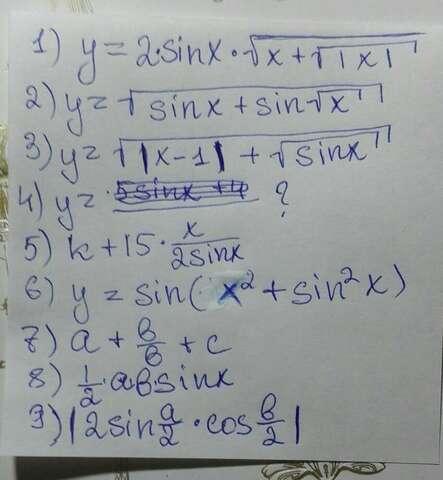 1) y = 2·sinx·√(x+√|x|)
2) y = √(sinx + sin√x)
3) y = √(|x-1| + √sinx)
4) y = 5sinx+4 ?
5) k+15·x/2sinx
6) y = sin(x²+sin²x)
7) a + в/в + c
8) 1/2·aв·sinx
9) |2sin a/2 · cos в/2|